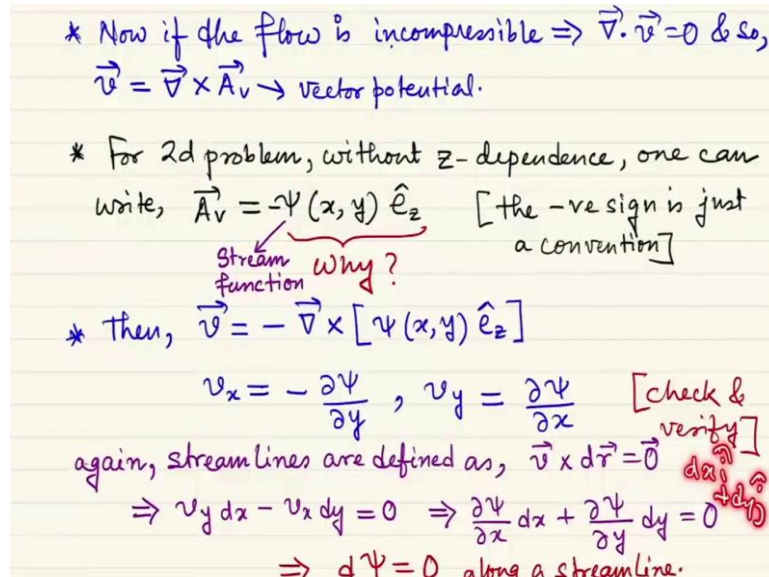 * Now if the flow is incompressible ⇒ ∇⃗. v⃗ = 0 & so,
v⃗ = ∇⃗ × A⃗ᵥ → vector potential.
* For 2d problem, without z-dependence, one can
write, A⃗ᵥ = -Ψ (x, y) ê_z [the -ve sign is just
a convention]
Stream
function
Why?
* Then, v⃗ = - ∇⃗ × [Ψ (x, y) ê_z]
v_x = - ∂Ψ/∂y , v_y = ∂Ψ/∂x [check &
verify]
again, streamlines are defined as, v⃗ × dr⃗ = 0⃗
dx î
+ dy ĵ
⇒ v_y dx - v_x dy = 0 ⇒ ∂Ψ/∂x dx + ∂Ψ/∂y dy = 0
⇒ dΨ = 0 along a streamline.